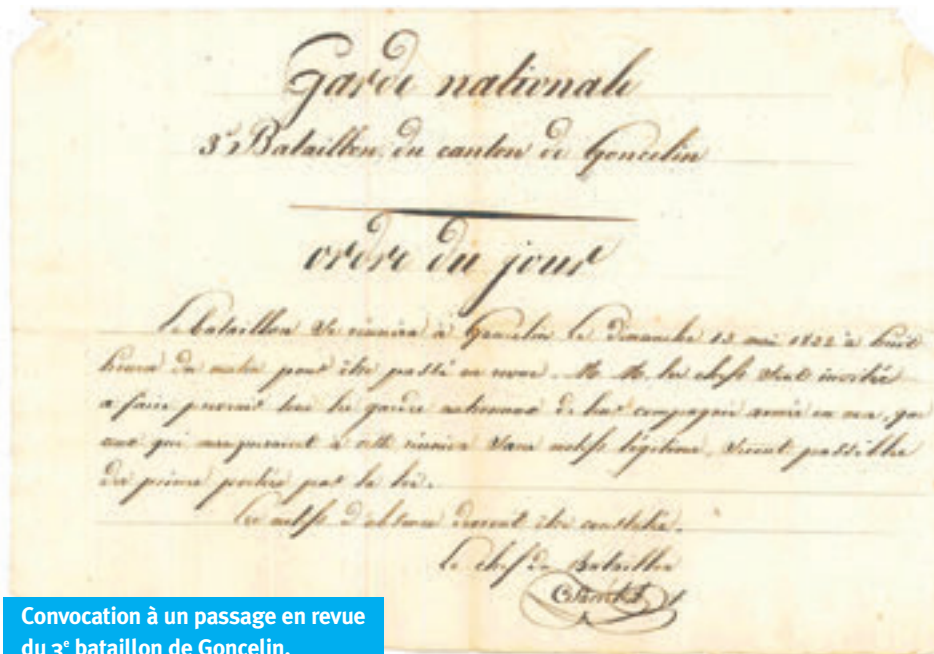 Garde nationale
3e Bataillon du canton de Goncelin
ordre du jour
Le bataillon se réunira à Goncelin le Dimanche 13 mai 1832 à huit
heures du matin pour être passé en revue. M. M. les chefs sont invités
a faire prévenir tous les gardes nationaux de leur compagnie que
ceux qui manqueraient à cette réunion sans motifs légitimes, seront passibles
des peines portées par la loi.
Les motifs d'absence devront être constatés.
Le chef de Bataillon
Convocation à un passage en revue
du 3e bataillon de Goncelin.